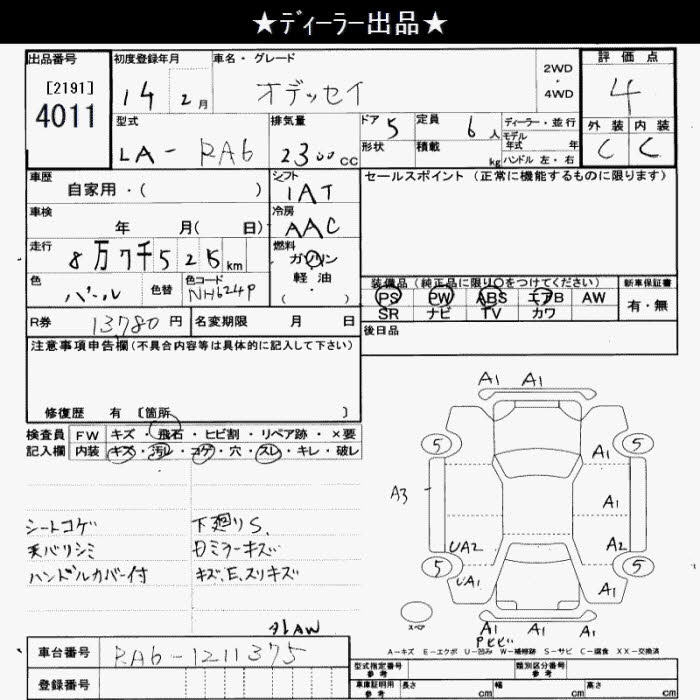 ★ディーラー出品★
出品番号 初度登録年月 車名・グレード 2WD・4WD 評価点
[2191]
4011 14 2月 オデッセイ 4
型式 排気量 ドア 5 定員 6人 ディーラー・並行 外装 内装
LA-RA6 2300cc 形状 積載 kg モデル年式 年 C C
ハンドル 左・右
車歴 シフト セールスポイント (正常に機能するものに限ります)
自家用・( ) IAT
車検 冷房
年 月( 日) AAC
走行 燃料
8万7千5 2 km ガソリン
色 色替 色コード 軽油 装備品 (純正品に限り○をつけてください) 新車保証書
パール NH624P ( ・ ) PS PW ABS エアB AW 有・無
SR ナビ TV カワ
R券 13,780円 名変期限 月 日 後日品
注意事項申告欄 (不具合内容等は具体的に記入して下さい)
修復歴 有 〔箇所 〕
検査員 FW キズ・飛石・ヒビ割・リペア跡・×要
記入欄 内装 キズ・汚レ・コゲ・穴・スレ・キレ・破レ
A1 A1
5 5
A1
A3 A1
シートコゲ 下廻りS,
天バリシミ ミラーキズ UA2 A2
ハンドルカバー付 キズ、E、スリキズ
5 5
UA1 A1
スペア
A1 A1 A1
タトAW Pビビ
A-キズ E-エクボ U-凹み W-補修跡 S-サビ C-腐食 XX-交換済
車台番号 RA6-1211375
型式指定番号 参考 類別区分番号 参考
登録番号 車庫証明用 参考 長さ cm 幅 cm 高さ cm